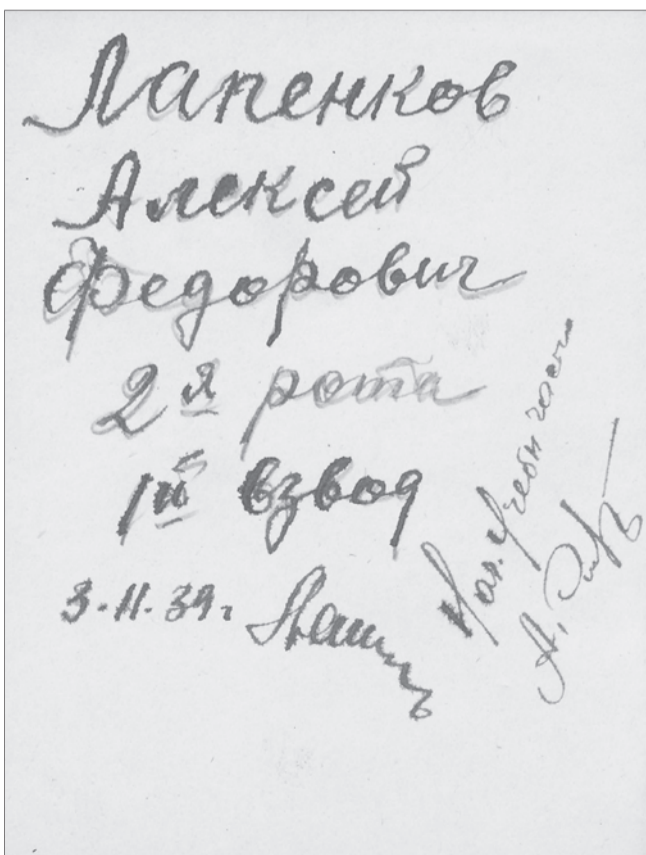 Лапенков
Алексей
Федорович
2я рота
1й взвод
3.II.39г.
Нач. учебн части